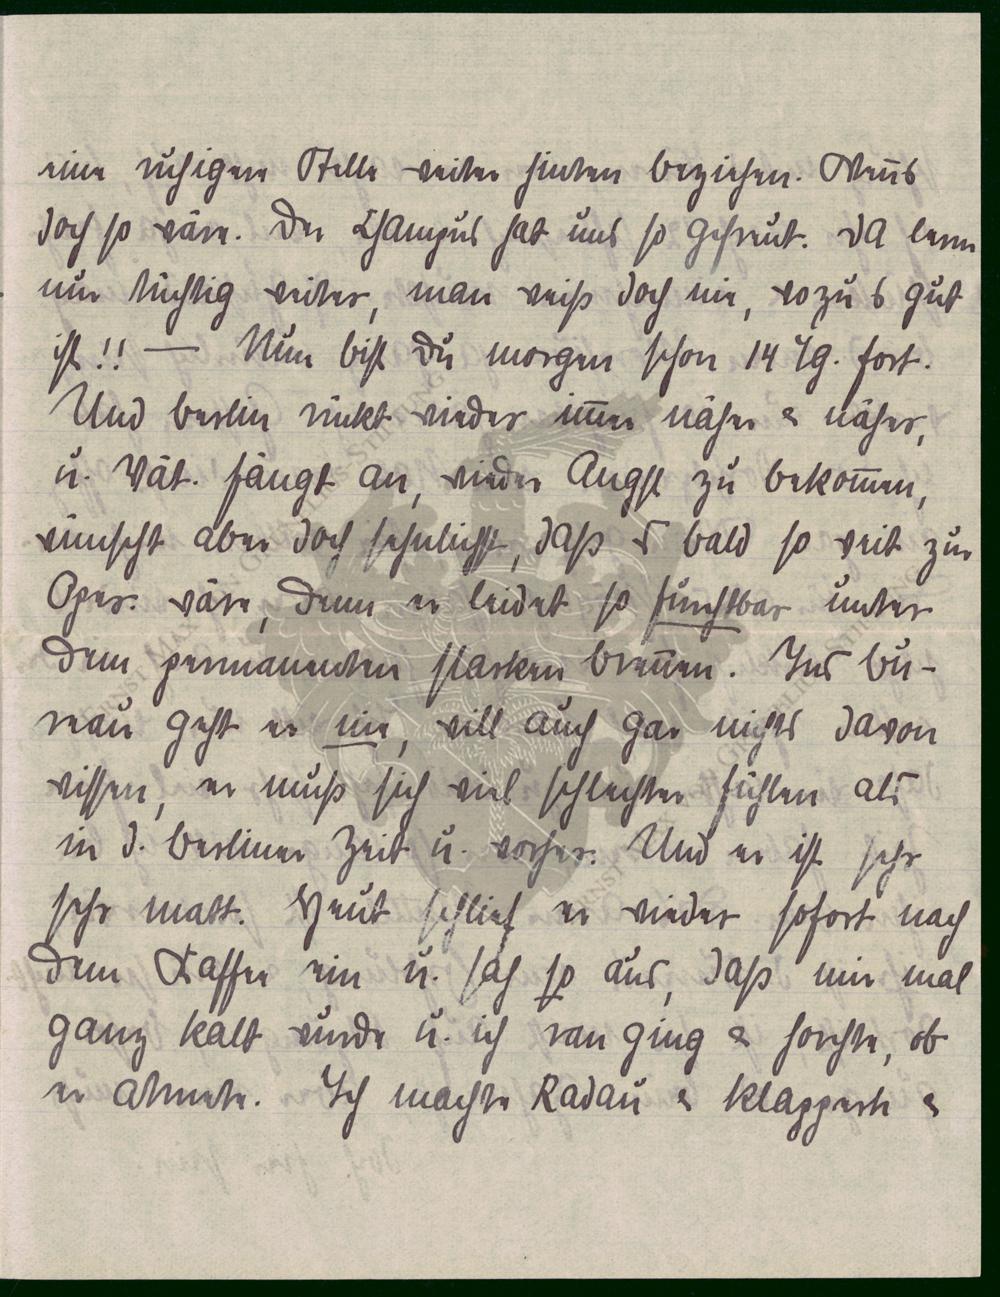 eine ruhigere Stelle weiter hinten beziehen. Wenns
doch so wäre. Der Champus hat uns so gefreut. Da lerne
nur tüchtig weiter, man weiß doch nie, wozu s gut
ist!! — Nun bist Du morgen schon 14 Tg. fort.
Und Berlin rückt wieder im̅er näher & näher,
u. Vat. fängt an, wieder Angst zu bekom̅en,
wünscht aber doch sehnlichst, daß es bald so weit zur
Oper. wäre, denn er leidet so furchtbar unter
dem permanenten starken Bren̅en. Ins Bu-
reau geht er nie, will auch gar nichts davon
wissen, er muß sich viel schlechter fühlen als
in d. Berliner Zeit u. vorher. Und er ist sehr
sehr matt. Heut schlief er wieder sofort nach
dem Kaffee ein u. sah so aus, daß mir mal
ganz kalt wurde u. ich ran ging & horchte, ob
er atmete. Ich machte Radau & klapperte &
ERNST MAX GRETE STIFTUNG